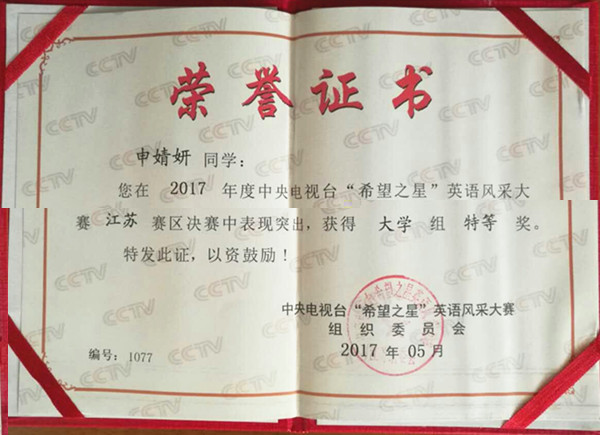 荣誉证书
申婧妍 同学：
您在 2017 年度中央电视台“希望之星”英语风采大
赛 江苏 赛区决赛中表现突出，获得 大学 组 特等 奖。
特发此证，以资鼓励！
中央电视台“希望之星”英语风采大赛
组织委员会
2017 年 05 月
编号：1077
CCTV